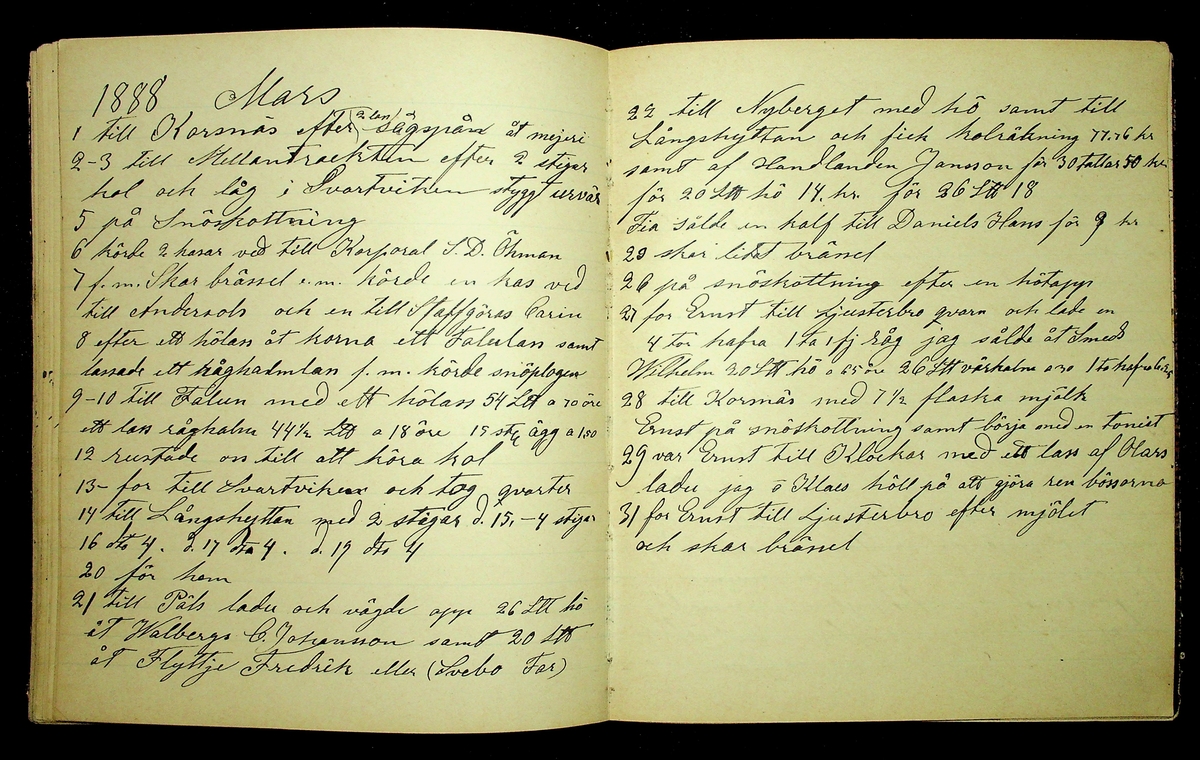 1888 Mars
1 till Korsnäs efter (2 lan) sågspån åt mejeri
2-3 till Mellantrackten efter 2 stigar
kol och låg i Svartviken stygt urvär
5 på Snöskottning
6 körde 2 kasar ved till Korporal S. D. Öhman
7 f. m. Skar brässel e. m. körde en kas ved
till Andersols och en till Staffgöras Carin
8 efter ett hölan åt korna ett Falulan samt
lassade ett råghalmlan f. m. körde snöplogen
9-10 till Falun med ett hölass 54 Ltt a 70 öre
ett lass råghalm 44½ Ltt a 18 öre 15 stg ägg a 1,50
12 rustade on till att köra kol
13- for till Svartviken och tog qvarter
14 till Långshyttan med 2 stigar d. 15, -4 stigar
16 dto 4. d. 17 dto 4. d. 19 dto 4
20 för hem
21 till Päls ladu och vägde opp 26 Ltt hö
åt Walbergs C. Johansson samt 20 Ltt
åt Flyttje Fredrik eller (Svebo Far)
22 till Nyberget med hö samt till
Långshyttan och fick kolräkning 77.76 kr
samt af Handlanden Jansson för 30 tallar 50 kr
för 20 Ltt hö 14. kr. för 26 Ltt 18
Fia sålde en kalf till Daniels Hans för 9 kr
23 skar lidet brässel
26 på snöskottning efter en hötapp
27 for Ernst till Ljusterbro qvarn och lade en
4 tor hafra 1 ta 1 fj råg jag sålde åt Smeds
Wilhelm 30 Ltt hö a 65 öre 26 Ltt vårhalm a 30 1 to hafra
28 till Kornäs med 7½ flaska mjölk
Ernst på snöskottning samt börja med en tonist
29 var Ernst till Klockar med ett lass af Olars
ladu jag o Klaes höll på att gjöra ren bössorna
31 for Ernst till Ljusterbro efter mjölet
och skar brässel